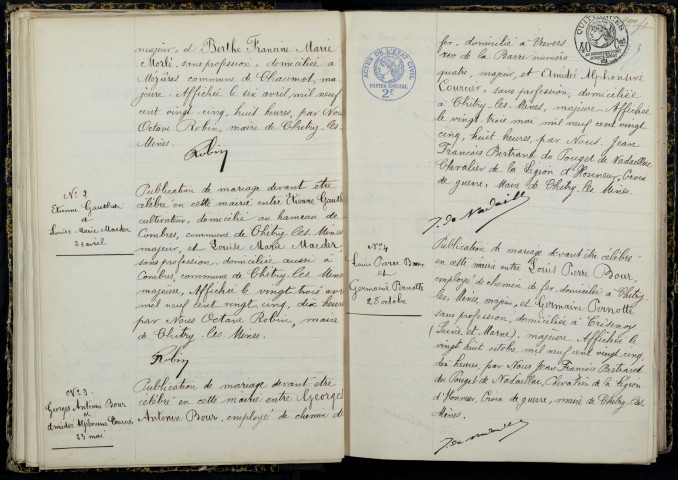 majeur, et Berthe Francine Marie
Morlé, sans profession, domiciliée à
Mézières commune de Chaumot, ma
jeure. Affichée le six avril mil neuf
cent vingt cinq, huit heures, par Nous
Octave Robin, maire de Chitry-les-
Mines.
Robin
N° 2
Etienne Gauthier
et
Louise Marie Maeder
23 avril
Publication de mariage devant être
célébré en cette mairie entre Etienne Gauth
cultivateur, domicilié au hameau de
Combres, commune de Chitry-les-Mines
majeur, et Louise Marie Maeder
sans profession, domiciliée aussi à
Combres, commune de Chitry les Mines
majeure, Affichée le vingt trois avr
mil neuf cent vingt cinq, dix heures
par Nous Octave Robin, maire
de Chitry-les-Mines.
Robin
N° 3
Georges Antonin Bour
et
Amidée Alphonsine Courrier
23 mai
Publication de mariage devant être
célébré en cette mairie entre Georges
Antonin Bour, employé de chemin de
ACTES DE L'ETAT CIVIL
PAPIER SPÉCIAL
2F
fer, domicilié à Nevers
rue de la Barre numéro
quatre, majeur, et Amidée Alphonsine
Courrier, sans profession, domiciliée
à Chitry-les-Mines, majeure. Affichée
le vingt trois mai mil neuf cent vingt
cinq, huit heures, par Nous, Jean
François Bertrand du Pouget de Nadaillac
Chevalier de la Légion d'Honneur, Croix
de guerre, Maire de Chitry-les-Mines.
J. de Nadaillac
N° 4
Louis Pierre Bour
et
Germaine Pernotte
28 octobre
Publication de mariage devant être célébré
en cette mairie entre Louis Pierre Bour,
employé de chemin de fer, domicilié à Chitry-
les-Mines, majeur, et Germaine Pernotte
sans profession, domiciliée à
(Seine et Marne), majeure. Affichée le
vingt huit octobre mil neuf cent vingt cinq,
dix heures, par Nous Jean François Bertrand
du Pouget de Nadaillac, Chevalier de la Légion
d'Honneur, Croix de guerre, maire de Chitry-les
Mines.
J. de Nadaillac